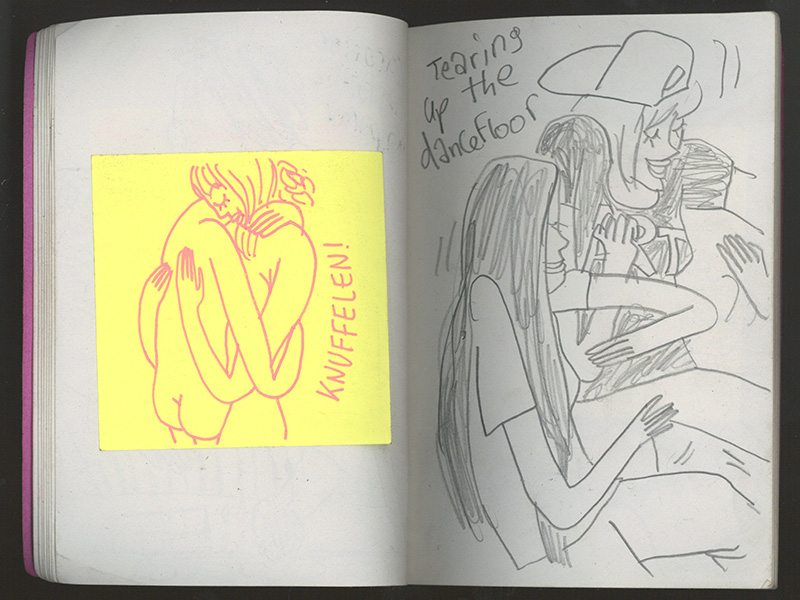 KNUFFELEN!
Tearing
up the
dancefloor